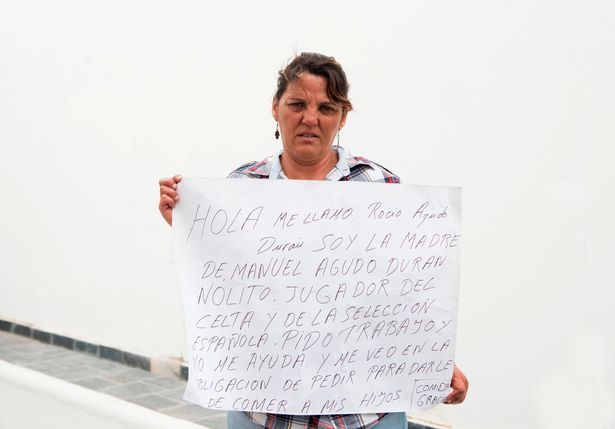 HOLA. ME LLAMO. Rocio Agudo
Duran. SOY LA MADRE
DE. MANUEL AGUDO DURAN
NOLITO. JUGADOR DEL
CELTA Y DE LA SELECCION
ESPAÑOLA. PIDO TRABAJO Y
NO ME AYUDA Y ME VEO EN LA
OBLIGACION DE PEDIR PARA DARLE
DE COMER A MIS HIJOS
COMIDA
GRACIAS